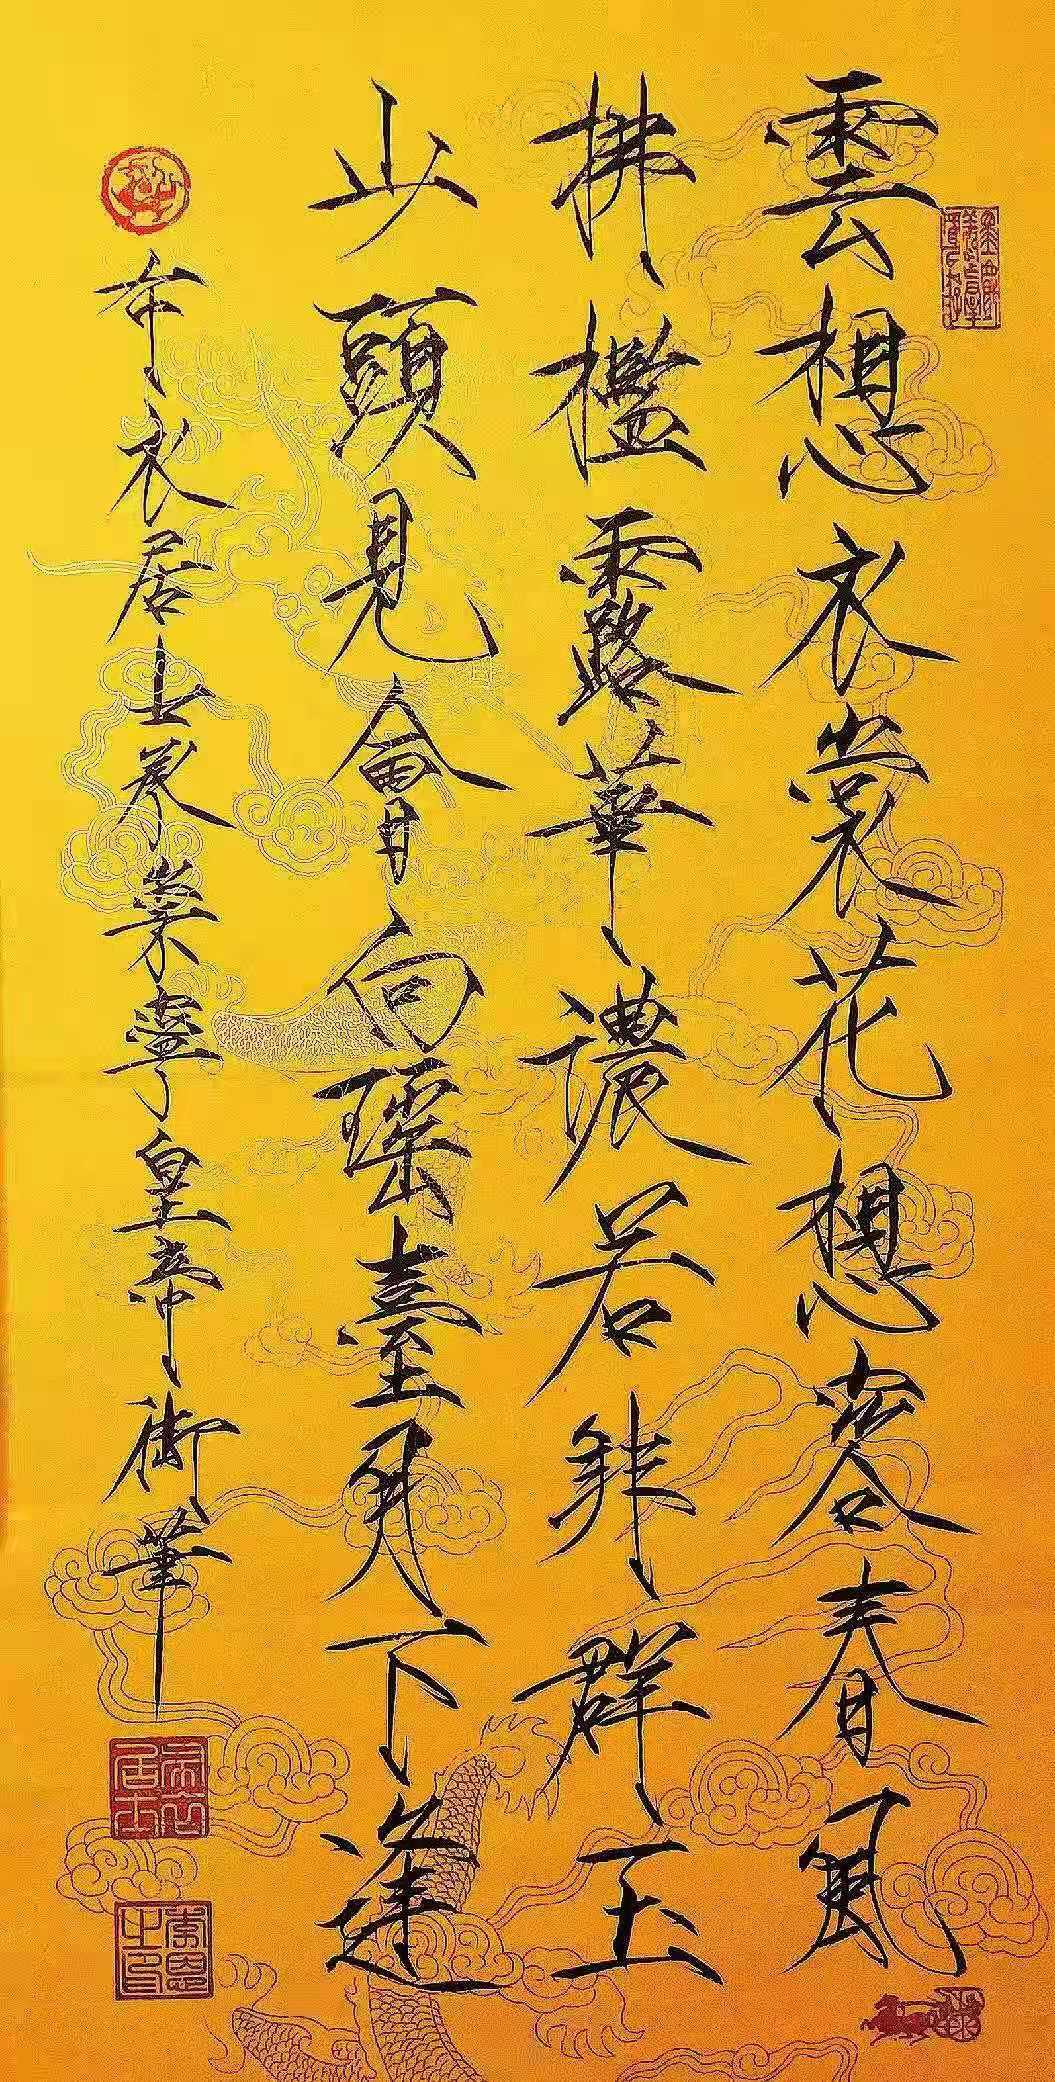 雲想衣裳花想容春風
拂檻露華濃若非群玉
山頭見會向瑤臺月下逢
布衣居士 皇帝御筆